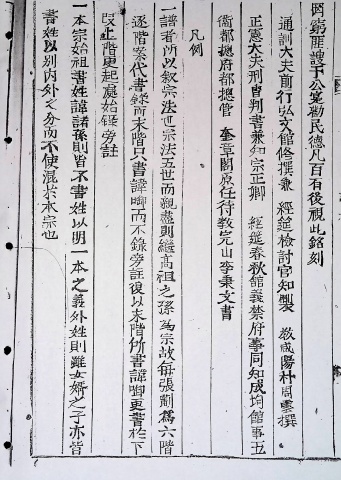 罔窮匪諼于公冢勒民總凡百有後視此銘刻
通訓大夫前行弘文館修撰兼 經筵檢討官知製 敎咸陽朴周雲撰
正憲大夫刑曹判書兼知宗正卿 經筵春秋館義禁府事同知成均館事五
衛都總府都總管 奎章閣原任待敎完山李秉文書
凡例
一譜者所以敘宗法也宗法五世而親盡則繼高祖之孫爲宗故每張劃爲六階
逐階案代書錄而末階只書諱啣而不錄旁註復以末階所書諱啣更書於下
段上階更起處始錄旁註
一本宗始祖書姓諱諸孫則皆不書姓以明一本之義外姓則雖女婿之子亦皆
書姓以別內外之分而不使混於本宗也